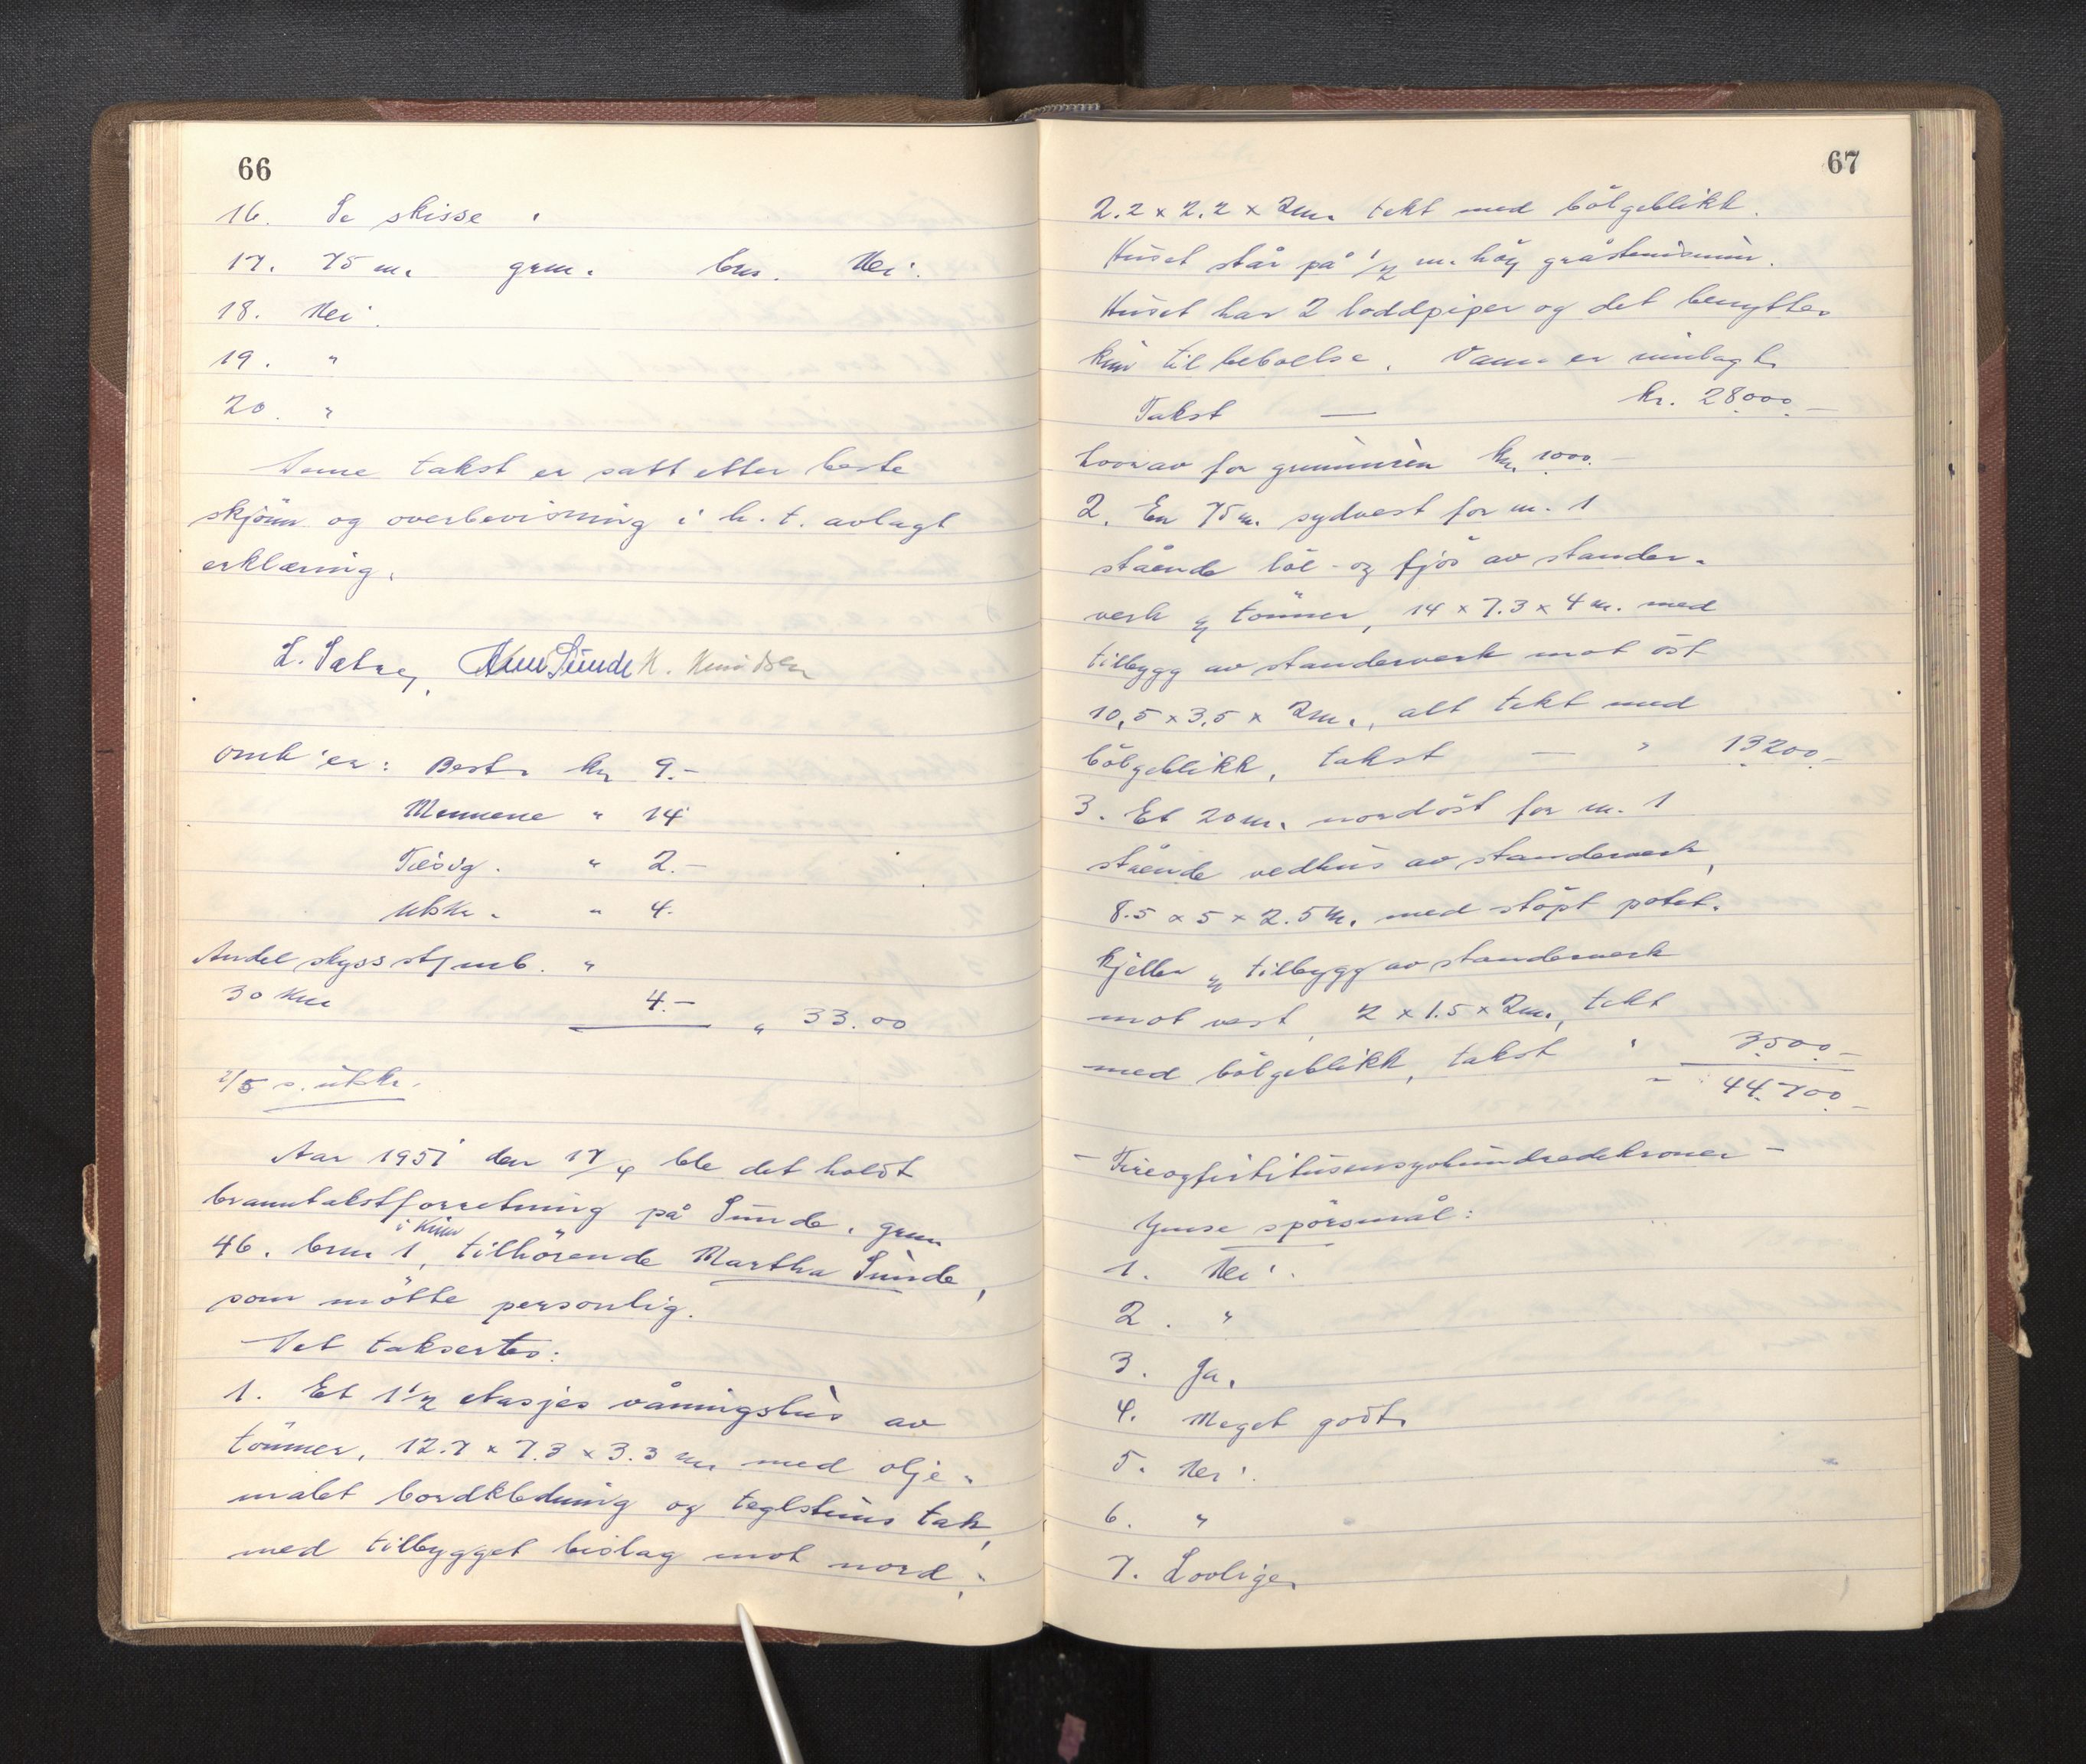 66
16. Se skisse.
17. 75 m. grm. bns. Nei.
18. Nei.
19. "
20. "
Denne takst er satt etter beste
skjönn og overbevisning i h. t. avlagt
erklæring.
L. Sætre, Sunde K. Knudsen
Omk'er: Best. kr 9.-
Mennene " 14
Tilsig. " 2.-
Utskr. " 4.
Andel skyss "
30 km 4.- " 33.00
2/5 s. utskr.
Aar 1951 den 17/4 ble det holdt
branntakstforretning på Sunde, grm
i Kinn
46, brm 1, tilhörende Martha Sunde,
som mötte personlig.
Det taksertes:
1. Et 1 1/2 etasjes våningshus av
tömmer, 12.7 x 7.3 x 3.3 m. med olje-
malet bordkledning og teglstens tak,
med tilbygget bislag mot nord,
67
2.2 x 2.2 x 2m. tekt med bölgeblikk.
Huset står på 1/2 m. höy gråstensmur.
Huset har 2 loddpiper og det benyttes
kun til beboelse. Vann er innlagt.
Takst — kr. 28000.-
hvorav for grunnmuren kr. 1000.-
2. En 75 m. sydvest for m. 1
stående löe- og fjös av stander-
verk og tömmer, 14 x 7.3 x 4 m. med
tilbygg av standerverk mot öst
10,5 x 3.5 x 2m., alt tekt med
bölgeblikk, takst — " 13200.-
3. Et 20 m. nordöst for m. 1
stående vedhus av standerverk,
8.5 x 5 x 2.5 m. med stöpt potet-
kjeller og tilbygg av standerverk
mot vest, 2 x 1.5 x 2m., tekt
med bölgeblikk, takst " 3500.-
" 44.700.-
- Fireogfirtitusensyvhundredekroner -
Ymse spörsmål:
1. Nei.
2. "
3. Ja.
4. Meget godt.
5. Nei.
6. "
7. Lovlige.